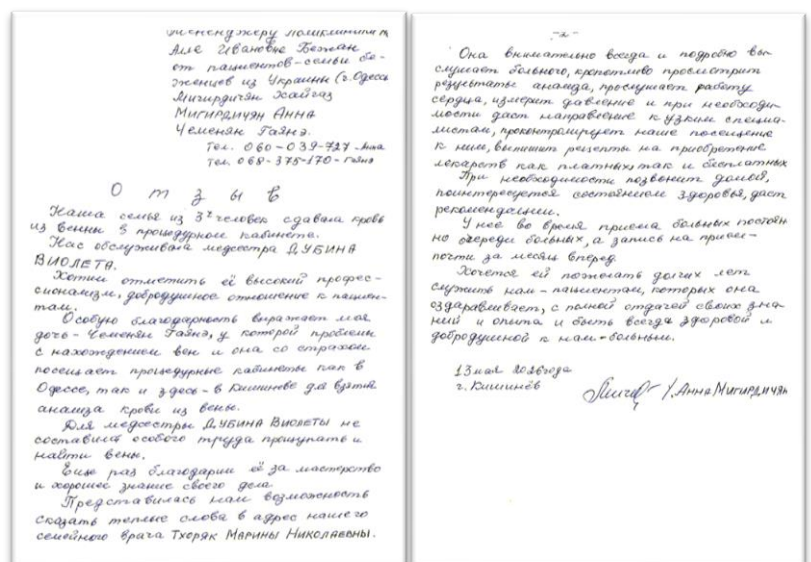 менеджеру поликлиники
Алле Ивановне Бежан
от пациентов-семьи бе-
женцев из Украины (г. Одесса
Мигирдичян Хайгаз
Мигирдичян Анна
Чеменян Гаянэ.
Тел. 060-039-727 - Анна
Тел. 068-375-170 - Гаянэ
Отзыв
Наша семья из 3х человек сдавала кровь
из венны в процедурном кабинете.
Нас обслуживала медсестра ДУБИНА
ВИОЛЕТА.
Хотим отметить её высокий профес-
сионализм, добродушное отношение к пациен-
там.
Особую благодарность выражает моя
дочь - Чеменян Гаянэ, у которой проблемы
с нахождением вен и она со страхом
посещает процедурные кабинеты как в
Одессе, так и здесь - в Кишинёве для взятия
анализа крови из вены.
Для медсестры ДУБИНА ВИОЛЕТЫ не
составит особого труда прощупать и
найти вены.
Еще раз благодарим её за мастерство
и хорошее знание своего дела.
Представилась нам возможность
сказать теплые слова в адрес нашего
семейного врача Тхоряк Марины Николаевны.
-2-
Она внимательно всегда и подробно вы-
слушает больного, кропотливо просмотрит
результаты анализа, прослушает работу
сердца, измерит давление и при необходи-
мости даст направление к узким специа-
листам, проконтролирует наше посещение
к ним, выпишит рецепты на приобретение
лекарств как платных, так и бесплатных
При необходимости позвонит домой,
поинтересуется состоянием здоровья, даст
рекомендации.
У неё во время приема больных постоян
но очереди больных, а запись на прием-
почти за месяц вперед.
Хочется ей пожелать долгих лет
служить нам - пациентам, которых она
оздоравливает, с полной отдачей своих зна-
ний и опыта и быть всегда здоровой и
добродушной к нам - больным.
13 мая 2026 года
г. Кишинёв
/Х. Анна Мигирдичян